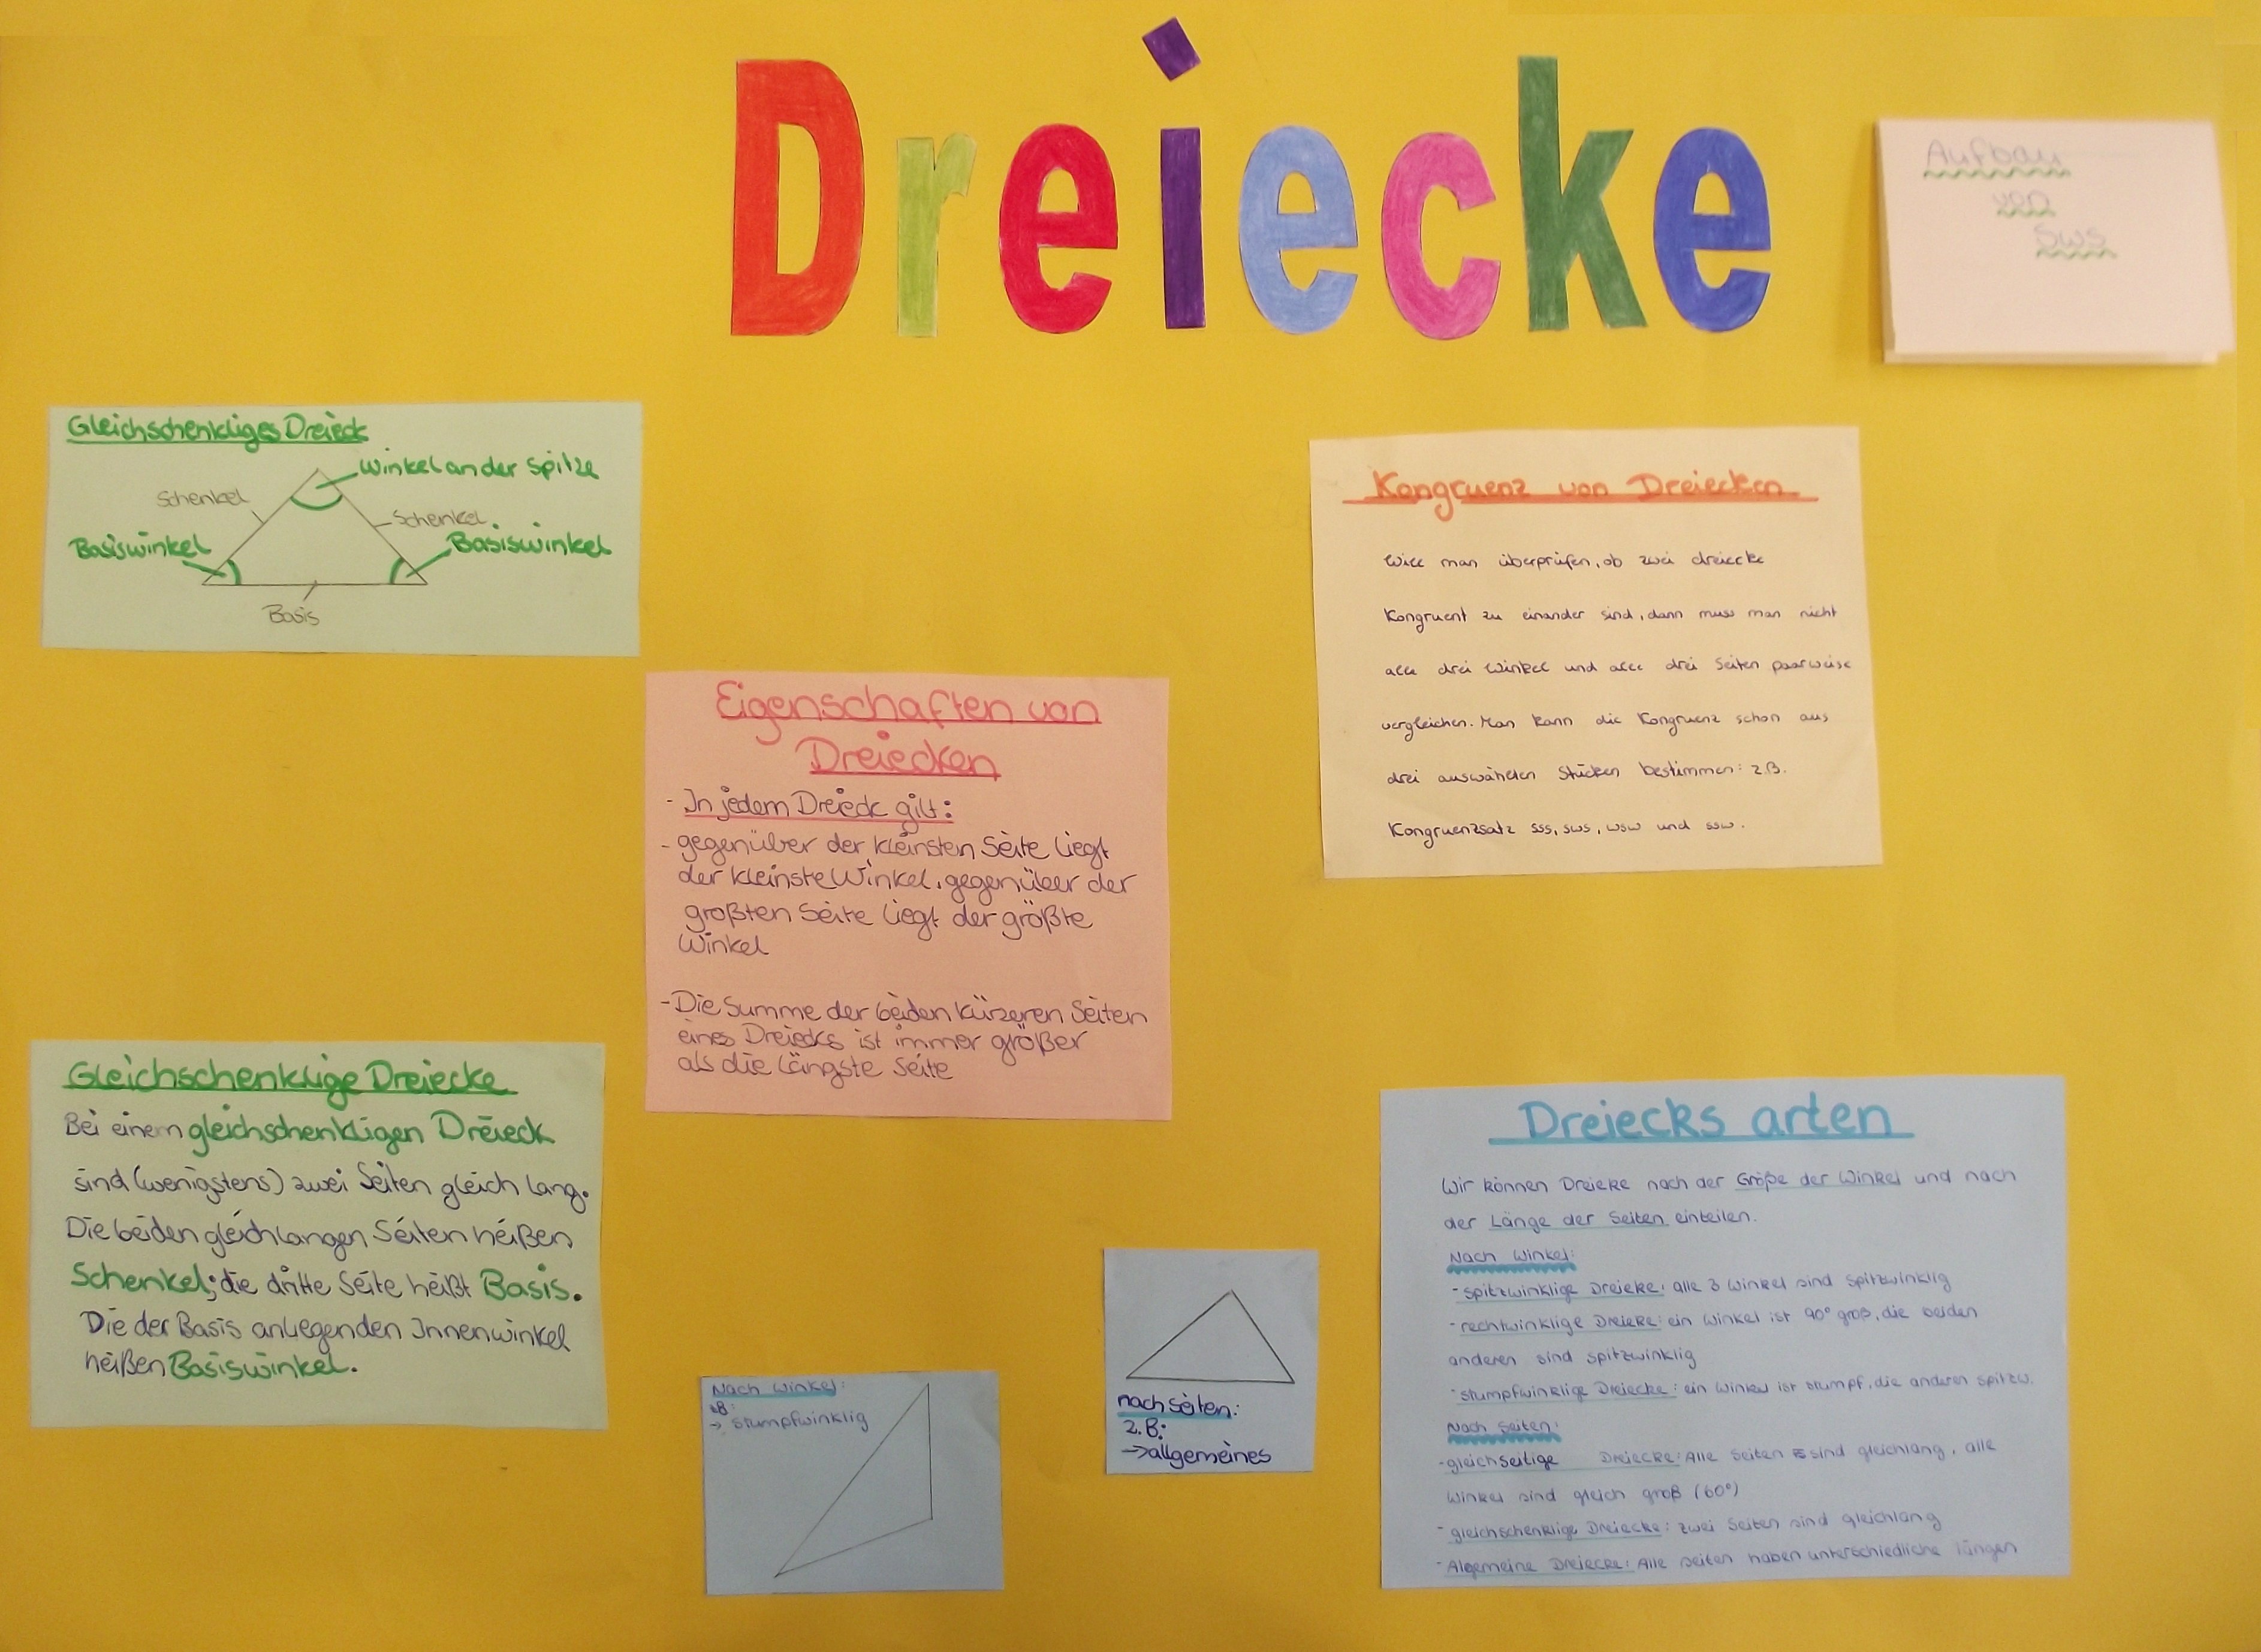 Dreiecke
Aufbau
von
Sws
Gleichschenkliges Dreieck
Winkel an der Spitze
Schenkel
Schenkel
Basiswinkel
Basiswinkel
Basis
Kongruenz von Dreiecken
Will man überprüfen, ob zwei dreiecke
Kongruent zu einander sind, dann muss man nicht
alle drei Winkel und alle drei Seiten paarweise
vergleichen. Man kann die Kongruenz schon aus
drei auswählen Stücken bestimmen: z.B.
Kongruenzsatz sss, sws, wsw und ssw.
Eigenschaften von
Dreiecken
- In jedem Dreieck gilt:
- gegenüber der kleinsten Seite liegt
der kleinste Winkel, gegenüber der
großten Seite liegt der größte
Winkel
- Die Summe der beiden kürzeren Seiten
eines Dreiecks ist immer größer
als die Längste Seite
Gleichschenklige Dreiecke
Bei einem gleichschenkligen Dreieck
sind (wenigstens) zwei Seiten gleich lang.
Die beiden gleichlangen Seiten heißen
Schenkel; die dritte Seite heißt Basis.
Die der Basis anliegenden Innenwinkel
heißen Basiswinkel.
Nach Winkel:
z.B:
→ stumpfwinklig
nach Seiten:
z.B.:
→ allgemeines
Dreiecks arten
Wir können Dreieke nach der Größe der Winkel und nach
der Länge der Seiten einteilen.
Nach Winkel:
- spitzwinklige Dreieke: alle 3 Winkel sind spitzwinklig
- rechtwinklige Dreieke: ein Winkel ist 90° groß, die beiden
anderen sind spitzwinklig
- stumpfwinklige Dreiecke: ein Winkel ist stumpf, die anderen spitzw.
Nach Seiten:
- gleichseitige Dreiecke: Alle Seiten sind gleichlang, alle
Winkel sind gleich groß (60°)
- gleichschenklige Dreiecke: zwei Seiten sind gleichlang
- Algemeine Dreiecke: Alle seiten haben unterschiedliche längen